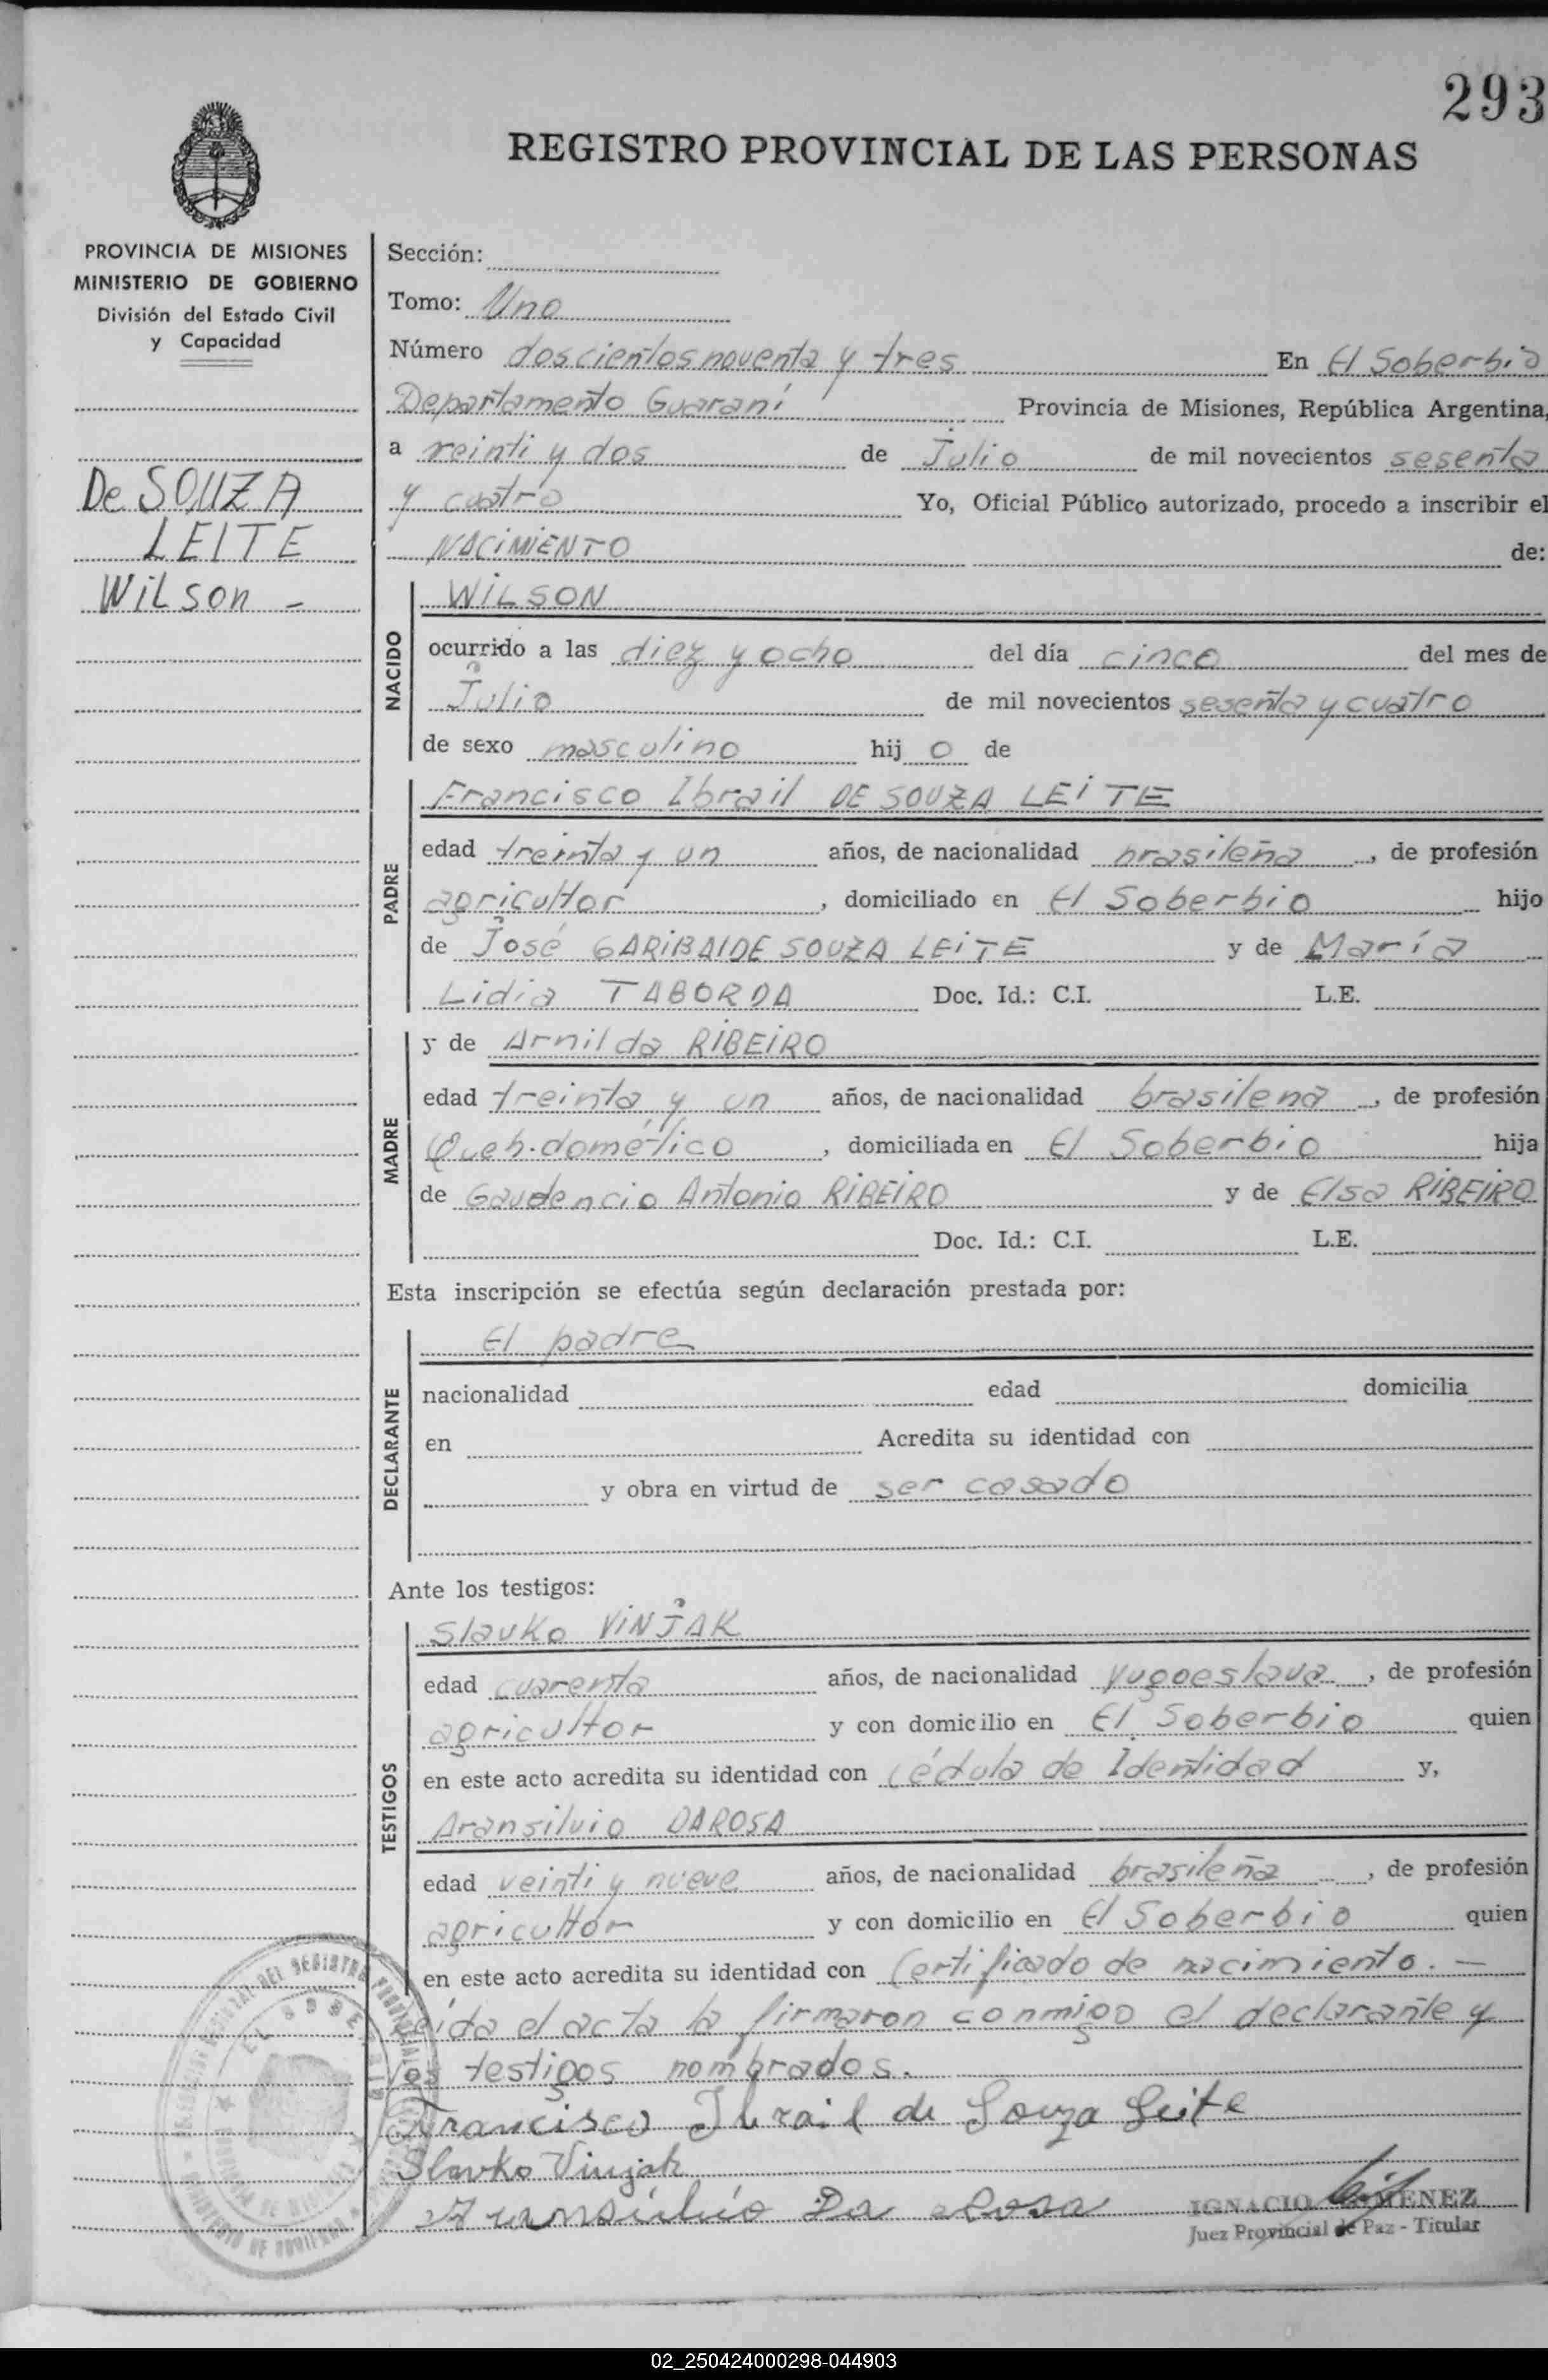 293
REGISTRO PROVINCIAL DE LAS PERSONAS
PROVINCIA DE MISIONES
MINISTERIO DE GOBIERNO
División del Estado Civil
y Capacidad
De SOUZA
LEITE
Wilson -
Sección:
Tomo: Uno
Número doscientos noventa y tres En El Soberbio
Departamento Guaraní Provincia de Misiones, República Argentina,
a veinti y dos de Julio de mil novecientos sesenta
y cuatro Yo, Oficial Público autorizado, procedo a inscribir el
NACIMIENTO de:
NACIDO
WILSON
ocurrido a las diez y ocho del día cinco del mes de
Julio de mil novecientos sesenta y cuatro
de sexo masculino hij o de
PADRE
Francisco Ibrail DE SOUZA LEITE
edad treinta y un años, de nacionalidad brasileña, de profesión
agricultor, domiciliado en El Soberbio hijo
de José GARIBALDE SOUZA LEITE y de María
Lidia TABORDA Doc. Id.: C.I. L.E.
MADRE
y de Arnilda RIBEIRO
edad treinta y un años, de nacionalidad brasilena, de profesión
Queh. domético, domiciliada en El Soberbio hija
de Gaudencio Antonio RIBEIRO y de Elsa RIBEIRO
Doc. Id.: C.I. L.E.
Esta inscripción se efectúa según declaración prestada por:
DECLARANTE
El padre
nacionalidad edad domicilia
en Acredita su identidad con
y obra en virtud de ser casado
Ante los testigos:
TESTIGOS
Slavko VINJAK
edad cuarenta años, de nacionalidad yugoeslava, de profesión
agricultor y con domicilio en El Soberbio quien
en este acto acredita su identidad con Cédula de Identidad y,
Aransilvio DAROSA
edad veinti y nueve años, de nacionalidad brasileña, de profesión
agricultor y con domicilio en El Soberbio quien
en este acto acredita su identidad con Certificado de nacimiento. —
Leida el acta la firmaron conmigo el declarante y
los testigos nombrados.
Francisco Ibrail de Souza Leite
Slavko Vinjak
Aransilvio Da Rosa
IGNACIO GIMENEZ
Juez Provincial de Paz - Titular
EL SOBERBIO
02_250424000298-044903